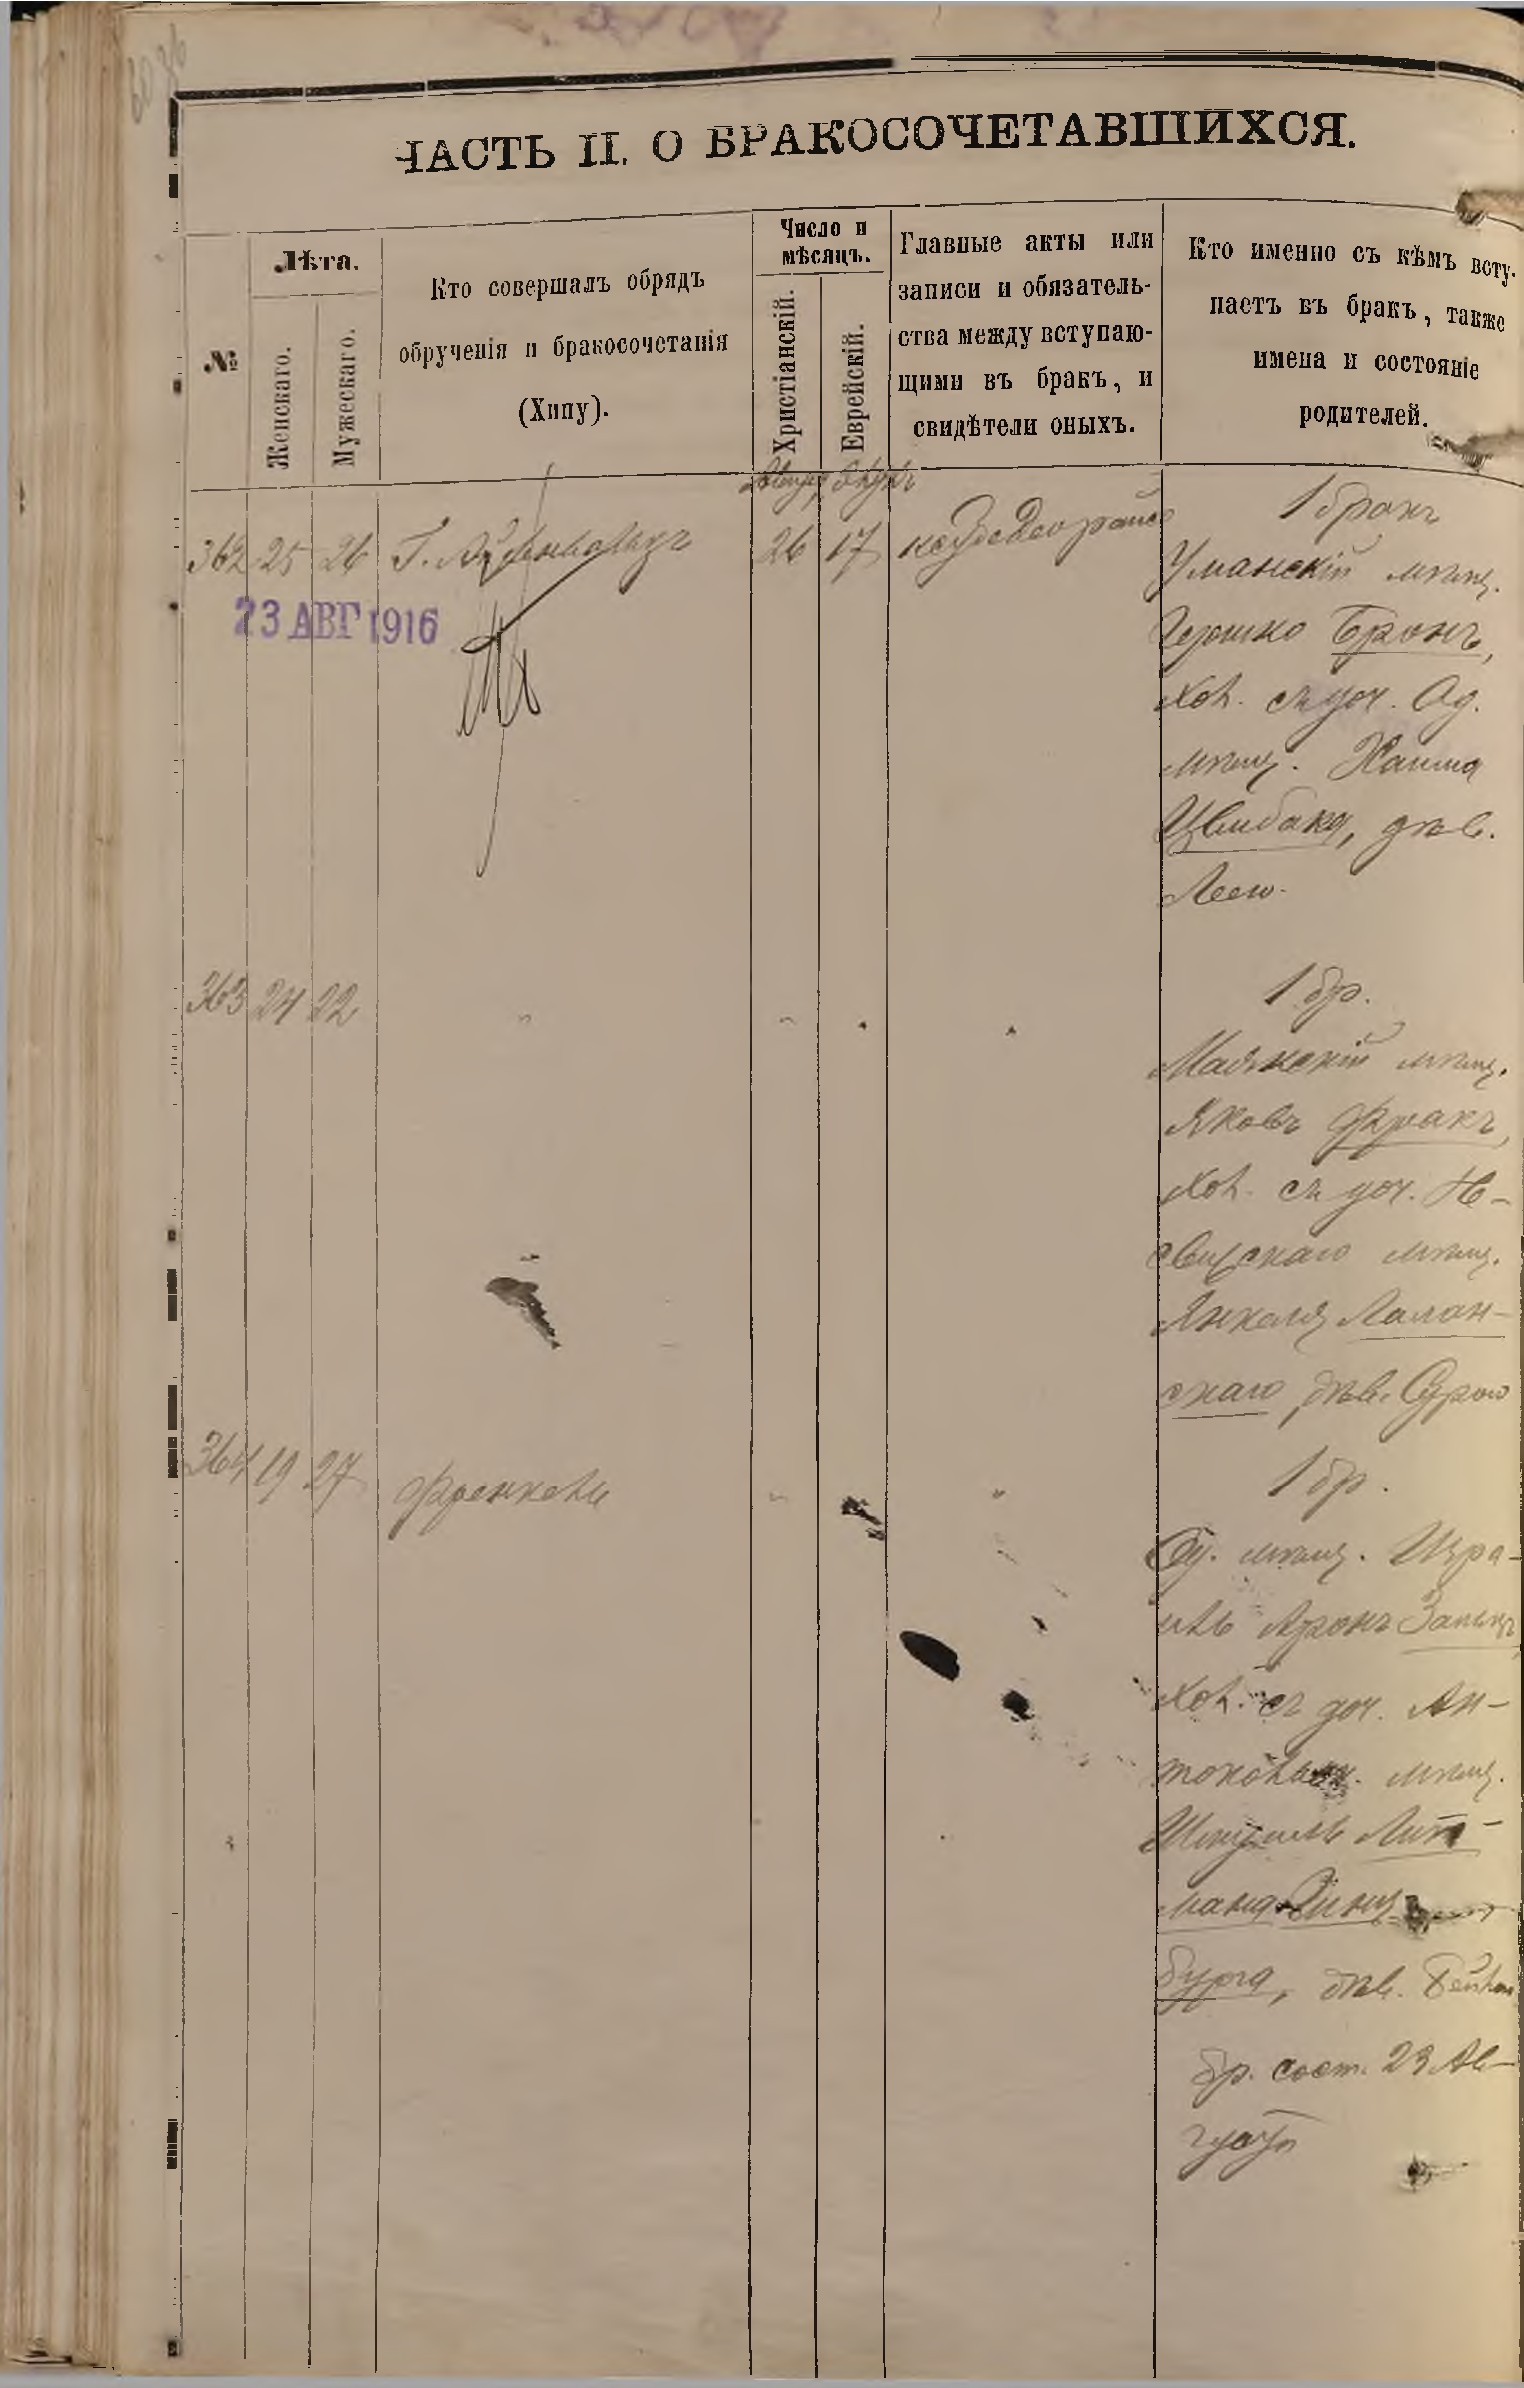 ЧАСТЬ II. О БРАКОСОЧЕТАВШИХСЯ.
№
Лѣта.
Женскаго.
Мужескаго.
Кто совершалъ обрядъ
обрученія и бракосочетанія
(Хипу).
Число и
мѣсяцъ.
Христіанскій.
Еврейскій.
Главные акты или
записи и обязатель-
ства между вступаю-
щими въ бракъ, и
свидѣтели оныхъ.
Кто именно съ кѣмъ всту-
паетъ въ бракъ, также
имена и состояніе
родителей.
362 25 26 Г. 26 17
23 АВГ 1916
1 бракъ
Уманскій мѣщ.
Гершко Бронъ,
хол. съ доч. Од.
мѣщ. Хаима
Цвибака, дѣв.
Леею.
363 24 22 " " " "
1 бр.
Маякскій мѣщ.
Яковъ Фракъ,
хол. съ доч. Не-
свижскаго мѣщ.
Янкеля Лалан-
скаго дѣв. Сурою
364 19 27 Френкель " "
1 бр.
Од. мѣщ. Изра-
иль Аронъ
хол. съ доч. Ан-
мѣщ.
Шмуиль Лит-
мана
бурга, дѣв.
бр. сост. 23 Ав-
густа